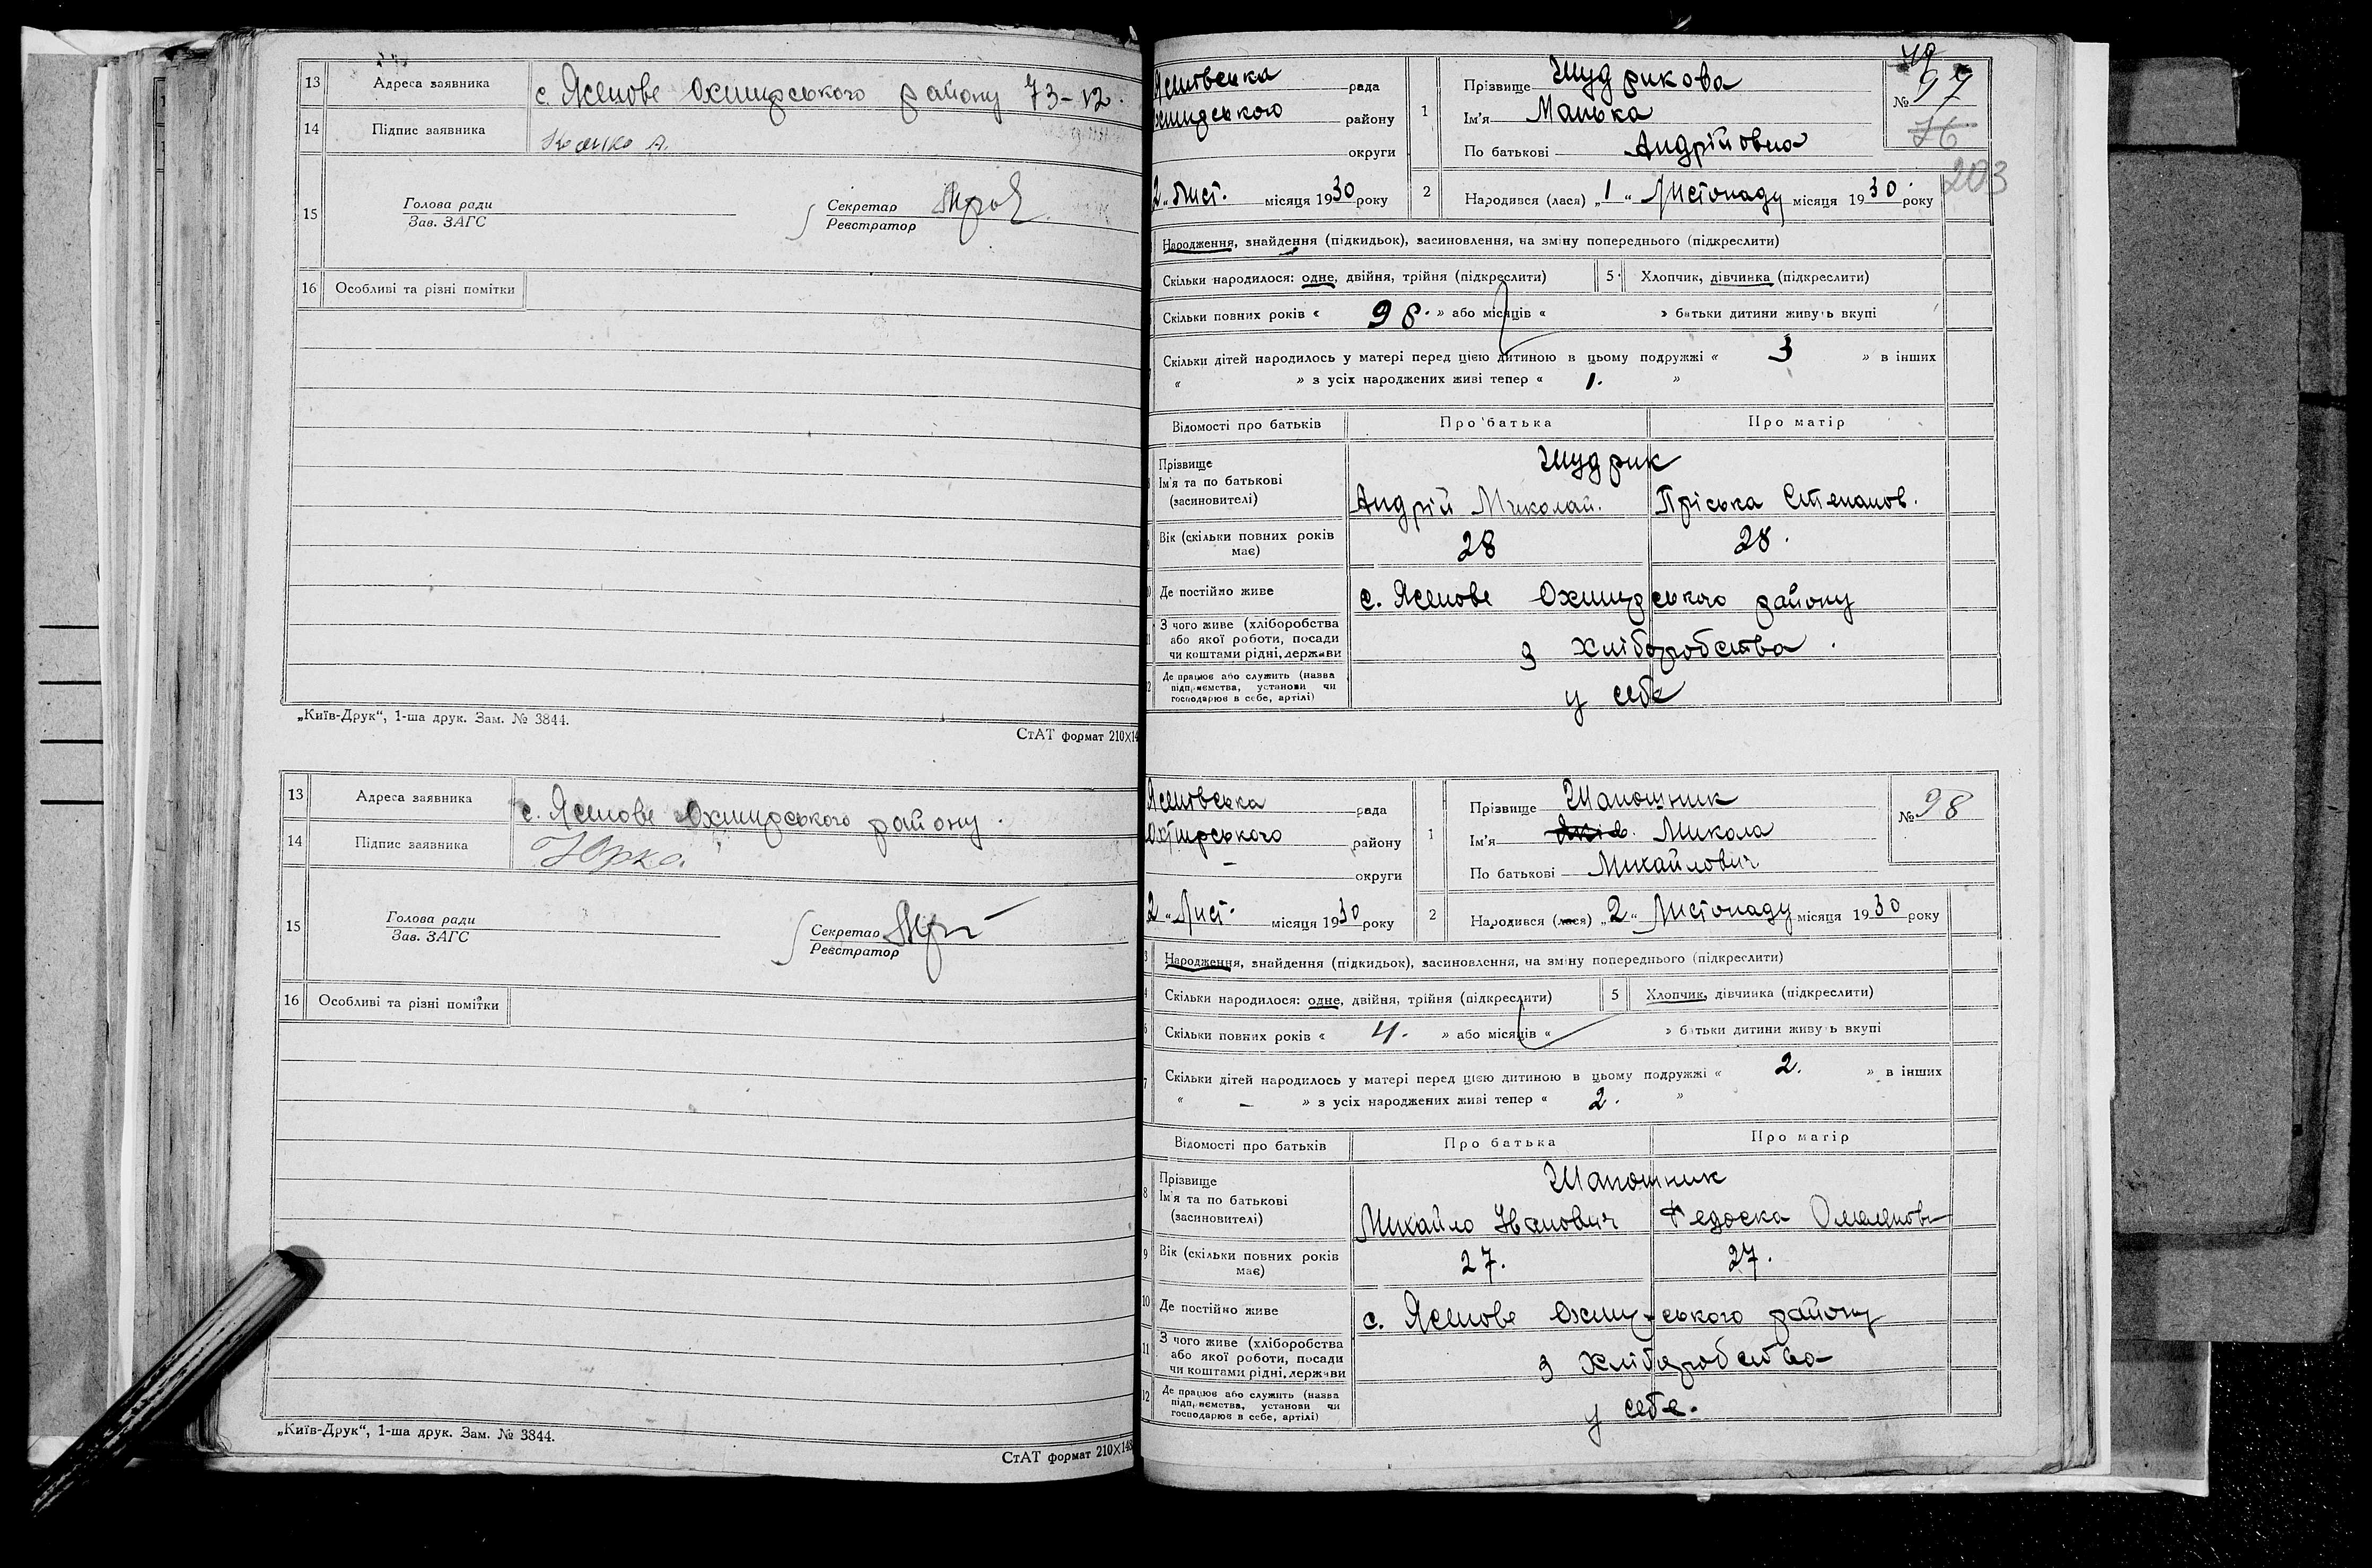 13 Адреса заявника с. Ясенове Охтирського району 73-12.
14 Підпис заявника
15 Голова ради
Зав. ЗАГС
Секретар
Реєстратор
16 Особливі та різні помітки
„Київ-Друк“, 1-ша друк. Зам. № 3844.
СтАТ формат 210×14
13 Адреса заявника с. Ясенове Охтирського району.
14 Підпис заявника
15 Голова ради
Зав. ЗАГС
Секретар
Реєстратор
16 Особливі та різні помітки
„Київ-Друк“, 1-ша друк. Зам. № 3844.
СтАТ формат 210×148
рада
району
округи
2 „ Лист. місяця 1930 року
1 Прізвище Шудрикова
Ім'я Манька
По батькові Андрійовна
№ 97
76
203
2 Народився (лася) „1“ Листопаду місяця 1930 року
Народження, знайдення (підкидьок), засиновлення, на зміну попереднього (підкреслити)
Скільки народилося: одне, двійня, трійня (підкреслити) 5 Хлопчик, дівчинка (підкреслити)
Скільки повних років « 98. » або місяців « » батьки дитини живуть вкупі
Скільки дітей народилось у матері перед цією дитиною в цьому подружжі « 3 » в інших
« » з усіх народжених живі тепер « 1. »
Відомості про батьків Про батька Про матір
Прізвище Шудрик
Ім'я та по батькові
(засиновителі) Андрій Миколай. Пріська Степанов.
Вік (скільки повних років має) 28 28.
Де постійно живе с. Ясенове Охтирського району
З чого живе (хліборобства
або якої роботи, посади
чи коштами рідні, держави з хліборобства.
Де працює або служить (назва
підприємства, установи чи
господарює в себе, артілі) у себе
Ясеновська рада
Охтирського району
– округи
2 „ Лист. місяця 1930 року
1 Прізвище Шапошник
Ім'я Микола
По батькові Михайлович
№ 98
2 Народився (лася) „2“ Листопаду місяця 1930 року
3 Народження, знайдення (підкидьок), засиновлення, на зміну попереднього (підкреслити)
4 Скільки народилося: одне, двійня, трійня (підкреслити) 5 Хлопчик, дівчинка (підкреслити)
6 Скільки повних років « 4. » або місяців « » батьки дитини живуть вкупі
7 Скільки дітей народилось у матері перед цією дитиною в цьому подружжі « 2. » в інших
« – » з усіх народжених живі тепер « 2. »
Відомості про батьків Про батька Про матір
8 Прізвище Шапошник
Ім'я та по батькові
(засиновителі) Михайло Іванович Федоска
9 Вік (скільки повних років має) 27. 27.
10 Де постійно живе с. Ясенове Охтирського району
11 З чого живе (хліборобства
або якої роботи, посади
чи коштами рідні, держави з хліборобства
12 Де працює або служить (назва
підприємства, установи чи
господарює в себе, артілі) у себе.